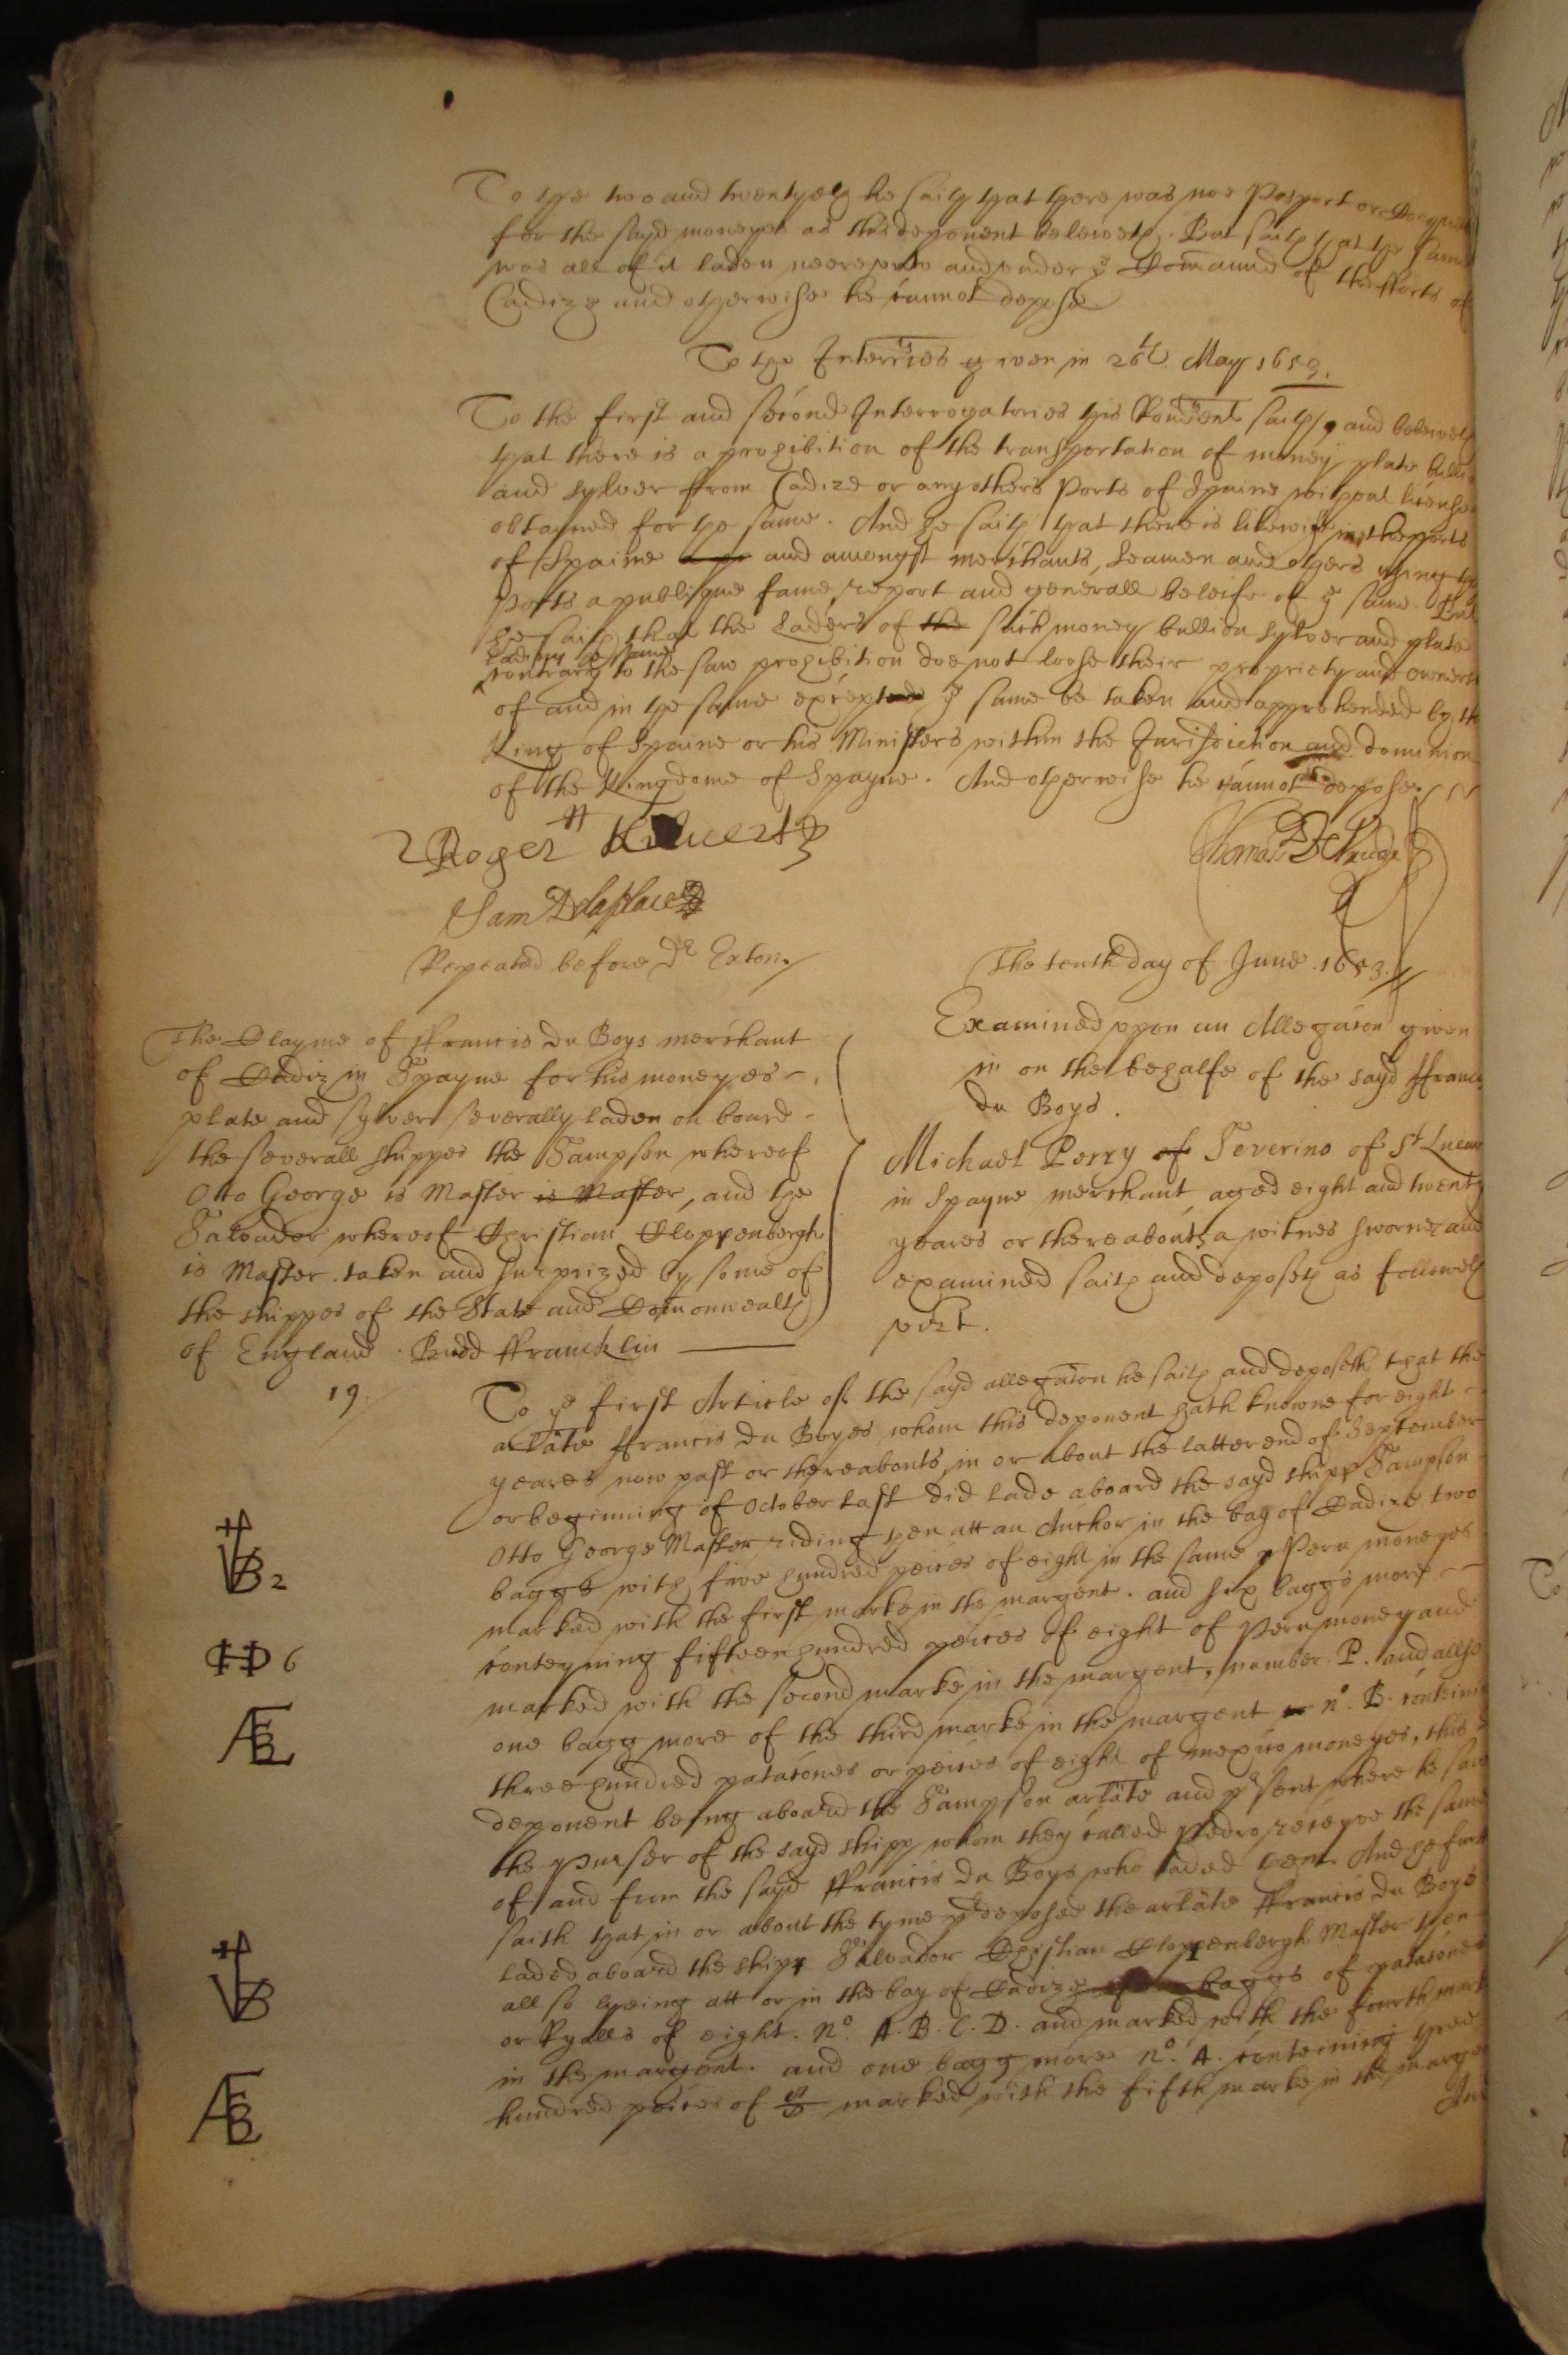 To the two and twentyeth he saith that there was noe Pasport or
for the sayd moneyes as this deponent beleiveth. But saith that the same
was all of it laden neere unto and under ye Comaund of the fforts of
Cadize and otherwise he cannot depose
To the Interries given in 26th May 1653.
To the first and second Interrogatories this Rondent saith, and beleiveth
that there is a prohibition of the transportation of money plate bulli
and sylver from Cadize or any others Ports of Spaine without license
obtayned for the same. And he saith that there is likewise in the ports
of Spaine and amongst merchants, seamen and others using the
Ports a publique fame, report and generall beleife of ye same. But
he saith that the Laders of the such money bullion sylver and plate
lading the same
contrary to the saw prohibition doe not loose their propriety and owners
of and in the same except ye same be taken and apprehended by th
King of Spaine or his Ministers within the Jurisdiction and dominion
of the Kingdome of Spayne. And otherwise he cannot depose.
Roger Kilvert
Thomas
Sam Delaplace
Repeated before Dr Exton.
The tenth day of June 1653.
The Clayme of ffrancis Du Boys merchant
of Cadiz in Spayne for his moneyes
plate and sylver severally laden on board
the severall shippes the Sampson whereof
Otto George is Master is Master, and the
Salvador whereof Christian Cloppenbergh
is Master taken and surprized by some of
the shippes of the State and Comonwealth
of England. Budd ffrancklin
19.
Examined upon an Allegacon given
in on the behalfe of the sayd ffranc
du Boys.
Michael Perry of Severino of St Lucar
in Spayne merchant, aged eight and twenty
yeares or thereabouts a witnes sworne and
examined saith and deposeth as followeth
vizt.
To ye first Article of the sayd allegacon he saith and deposeth that the
arlate ffrancis Du Boyes whom this deponent hath knowne for eight
yeares now past or thereabouts, in or about the latter end of September
or beginning of October last did lade aboard the sayd shipp Sampson
Otto George Master riding then att an Anchor in the bay of Cadize two
baggs with five hundred peices of eight in the same Peru moneyes
marked with the first marke in the margent. and six baggs more
conteyning fifteen hundred peices of eight of Peru money and
marked with the second marke in the margent, number P. and allso
one bagg more of the third marke in the margent no. B. conteini
three hundred patacones or peices of eight of mexico moneyes, this
deponent being aboard the Sampson arlate and psent where he saw
the purser of the sayd shipp whom they called Pedro receyve the same
of and from the sayd ffrancis Du Boys who laded them. And he furt
saith that in or about the tyme predeposed the arlate ffrancis Du Boys
laded aboard the shipp Salvador Christian Cloppenbergh Master then
allso lyeing att or in the bay of Cadize baggs of patacones
or Ryalls of eight. no. A. B. C. D. and marked with the fourth mark
in the margent. and one bagg more no. A. conteining three
hundred peices of 8/8 marked with the fifth marke in the marge
An
VB 2
6
AEB
VB
AEB